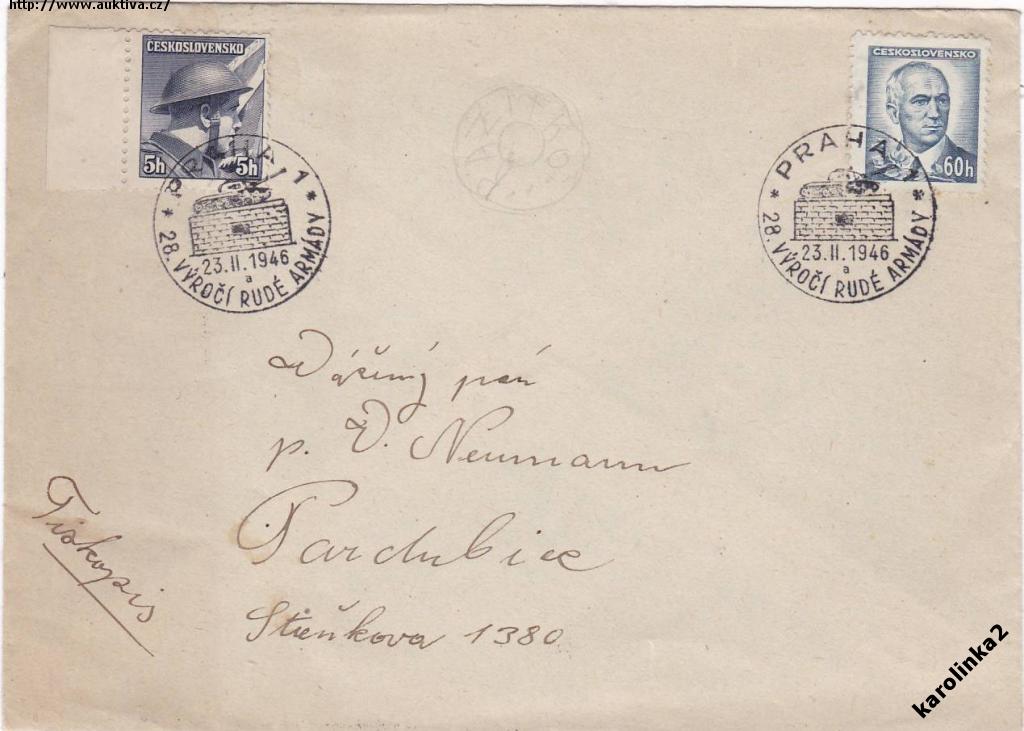 http://www.auktiva.cz/
ČESKOSLOVENSKO
5h 5h
* PRAHA 1 *
23.II.1946
a
28. VÝROČÍ RUDÉ ARMÁDY
ČESKOSLOVENSKO
60h
* PRAHA 1 *
23.II.1946
a
28. VÝROČÍ RUDÉ ARMÁDY
Vážený pán
p. V. Neumann
Pardubice
1380
Tiskopis
karolinka2